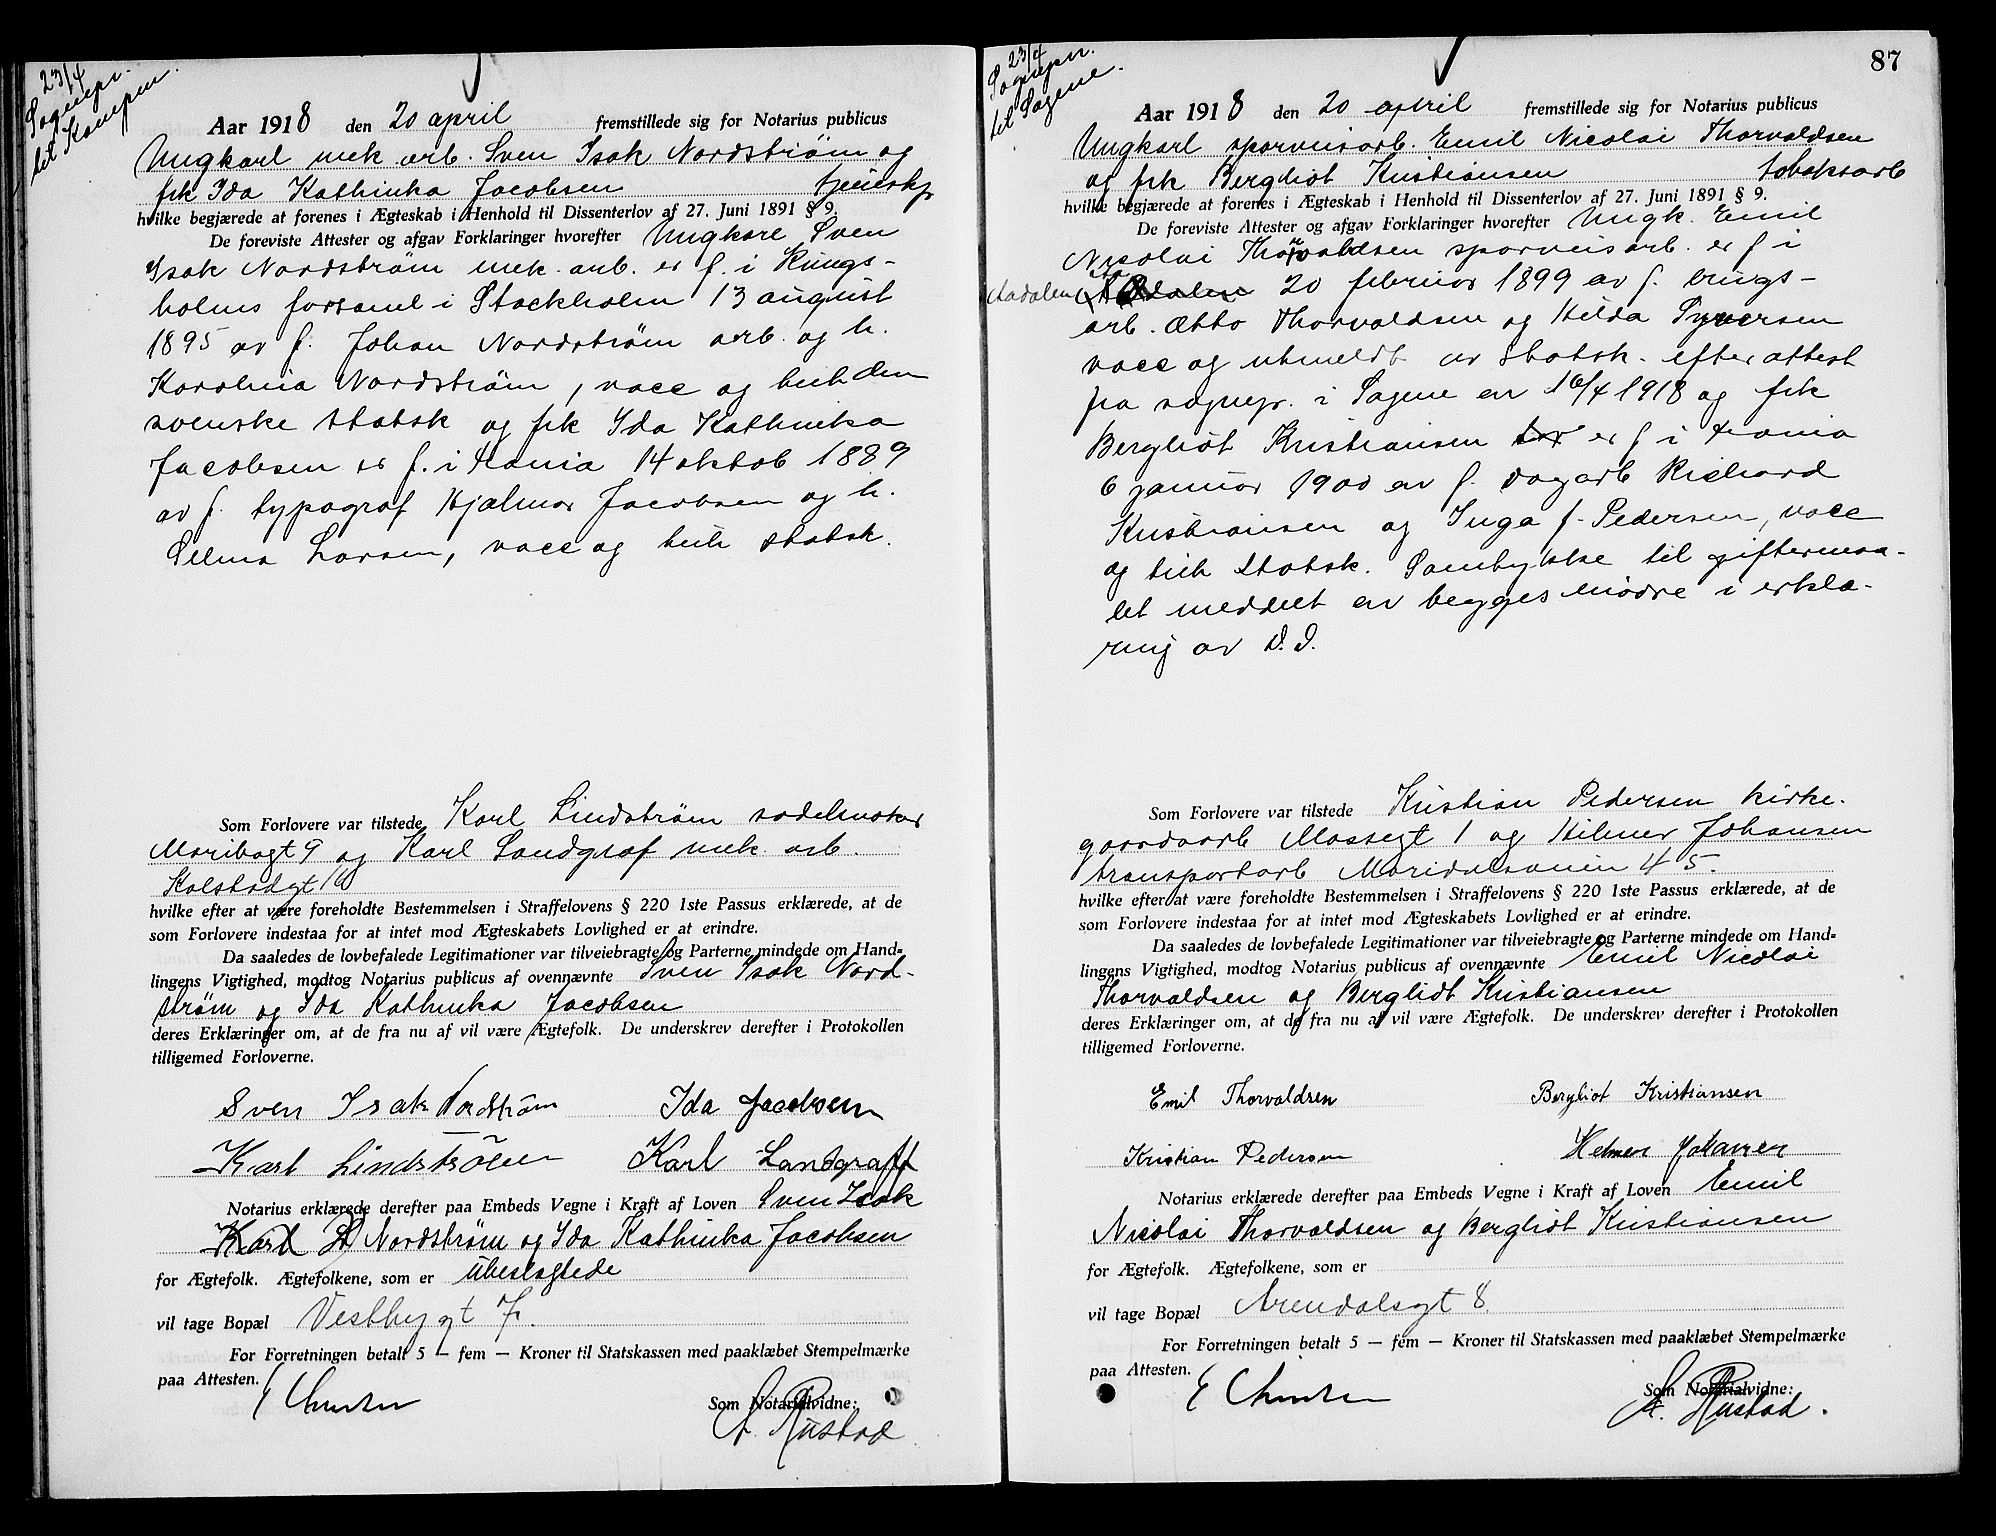 23/4
Sognepr.
til Kampen.
Aar 1918 den 20 april fremstillede sig for Notarius publicus
Ungkarl mek arb. Sven Isak Nordstrøm og
frk Ida Kathinka Jacobsen
hvilke begjærede at forenes i Ægteskab i Henhold til Dissenterlov af 27. Juni 1891 § 9.
De foreviste Attester og afgav Forklaringer hvorefter Ungkarl Sven
Isak Nordstrøm mek. arb. er f. i Kungs-
holms forsaml i Stockholm 13 august
1895 av f. Johan Nordstrøm arb. og h.
Karolina Nordstrøm, vacc og tilh den
svenske statsk og frk Ida Kathinka
Jacobsen er f. i Krania 14 oktob 1889
av f. typograf Hjalmar Jacobsen og h.
Selma Larsen, vacc og tilh statsk.
Som Forlovere var tilstede Karl Lindstrøm sadelmaker
Maribogt 9 og Karl Landgraf mek. arb.
Kolstadgt
hvilke efter at være foreholdte Bestemmelsen i Straffelovens § 220 1ste Passus erklærede, at de
som Forlovere indestaa for at intet mod Ægteskabets Lovlighed er at erindre.
Da saaledes de lovbefalede Legitimationer var tilveiebragte og Parterne mindede om Hand-
lingens Vigtighed, modtog Notarius publicus af ovennævnte Sven Isak Nord-
strøm og Ida Kathinka Jacobsen
deres Erklæringer om, at de fra nu af vil være Ægtefolk. De underskrev derefter i Protokollen
tilligemed Forloverne.
Sven Isak Nordstrøm Ida Jacobsen
Karl Lindström Karl Landgraff
Notarius erklærede derefter paa Embeds Vegne i Kraft af Loven Sven Isak
Karl Nordstrøm og Ida Kathinka Jacobsen
for Ægtefolk. Ægtefolkene, som er ubeslegtede
vil tage Bopæl Vestbygt 7.
For Forretningen betalt 5 — fem — Kroner til Statskassen med paaklæbet Stempelmærke
paa Attesten.
Som Notarialvidne:
A. Rustad
87
23/4
Sognepr.
til Sagene.
Aar 1918 den 20 april fremstillede sig for Notarius publicus
Ungkarl sporveisarb. Emil Nicolai Thorvaldsen
og frk Bergliot Kristiansen tobaksarb
hvilke begjærede at forenes i Ægteskab i Henhold til Dissenterlov af 27. Juni 1891 § 9.
De foreviste Attester og afgav Forklaringer hvorefter Ungk. Emil
Nicolai Thorvaldsen sporveisarb. er f i
Aadalen 20 februar 1899 av f. brugs-
arb. Otto Thorvaldsen og Hilda Syversen
vacc og utmeldt av statsk. efter attest
fra sognepr. i Sagene av 16/4 1918 og frk
Bergliot Kristiansen er f i Krania
6 januar 1900 av f. dagarb Richard
Kristiansen og Inga f. Pedersen, vacc
og tilh statsk. Samtykke til giftermaa-
let meddelt av begges mødre i erklæ-
ring av d. d.
Som Forlovere var tilstede Kristian Pedersen kirke-
gaardsarb Mossegt 1 og Hilmer Johansen
transportarb Maridalsveien 45.
hvilke efter at være foreholdte Bestemmelsen i Straffelovens § 220 1ste Passus erklærede, at de
som Forlovere indestaa for at intet mod Ægteskabets Lovlighed er at erindre.
Da saaledes de lovbefalede Legitimationer var tilveiebragte og Parterne mindede om Hand-
lingens Vigtighed, modtog Notarius publicus af ovennævnte Emil Nicolai
Thorvaldsen og Bergliot Kristiansen
deres Erklæringer om, at de fra nu af vil være Ægtefolk. De underskrev derefter i Protokollen
tilligemed Forloverne.
Emil Thorvaldsen Bergliot Kristiansen
Kristian Pedersen Helmer Johansen
Notarius erklærede derefter paa Embeds Vegne i Kraft af Loven Emil
Nicolai Thorvaldsen og Bergliot Kristiansen
for Ægtefolk. Ægtefolkene, som er
vil tage Bopæl Arendalsgt 8.
For Forretningen betalt 5 — fem — Kroner til Statskassen med paaklæbet Stempelmærke
paa Attesten.
Som Notarialvidne:
A. Rustad.